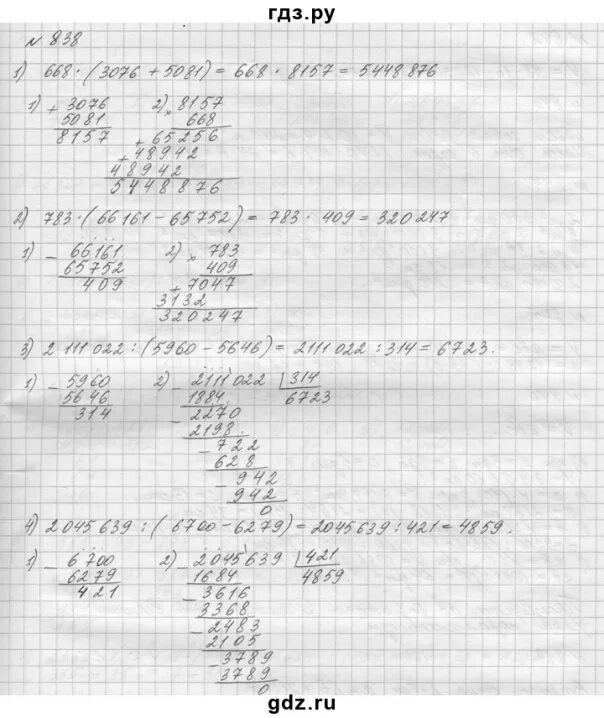 гдз.ру
№ 838
1) 668 · (3076 + 5081) = 668 · 8157 = 5448 876
1) + 3076 2) × 8157
5081 668
8157 + 65256
+ 48942
48942
5448876
2) 783 · (66161 - 65752) = 783 · 409 = 320247
1) - 66161 2) × 783
65752 409
409 + 7047
3132
320247
3) 2 111 022 : (5960 - 5646) = 2111 022 : 314 = 6723.
1) - 5960 2) - 2111022 314
5646 1884 6723
314 - 2270
2198
- 722
628
- 942
942
0
4) 2 045 639 : (6700 - 6279) = 2045639 : 421 = 4859.
1) - 6700 2) - 2045639 421
6279 1684 4859
421 - 3616
3368
- 2483
2105
- 3789
3789
0
gdz.ru